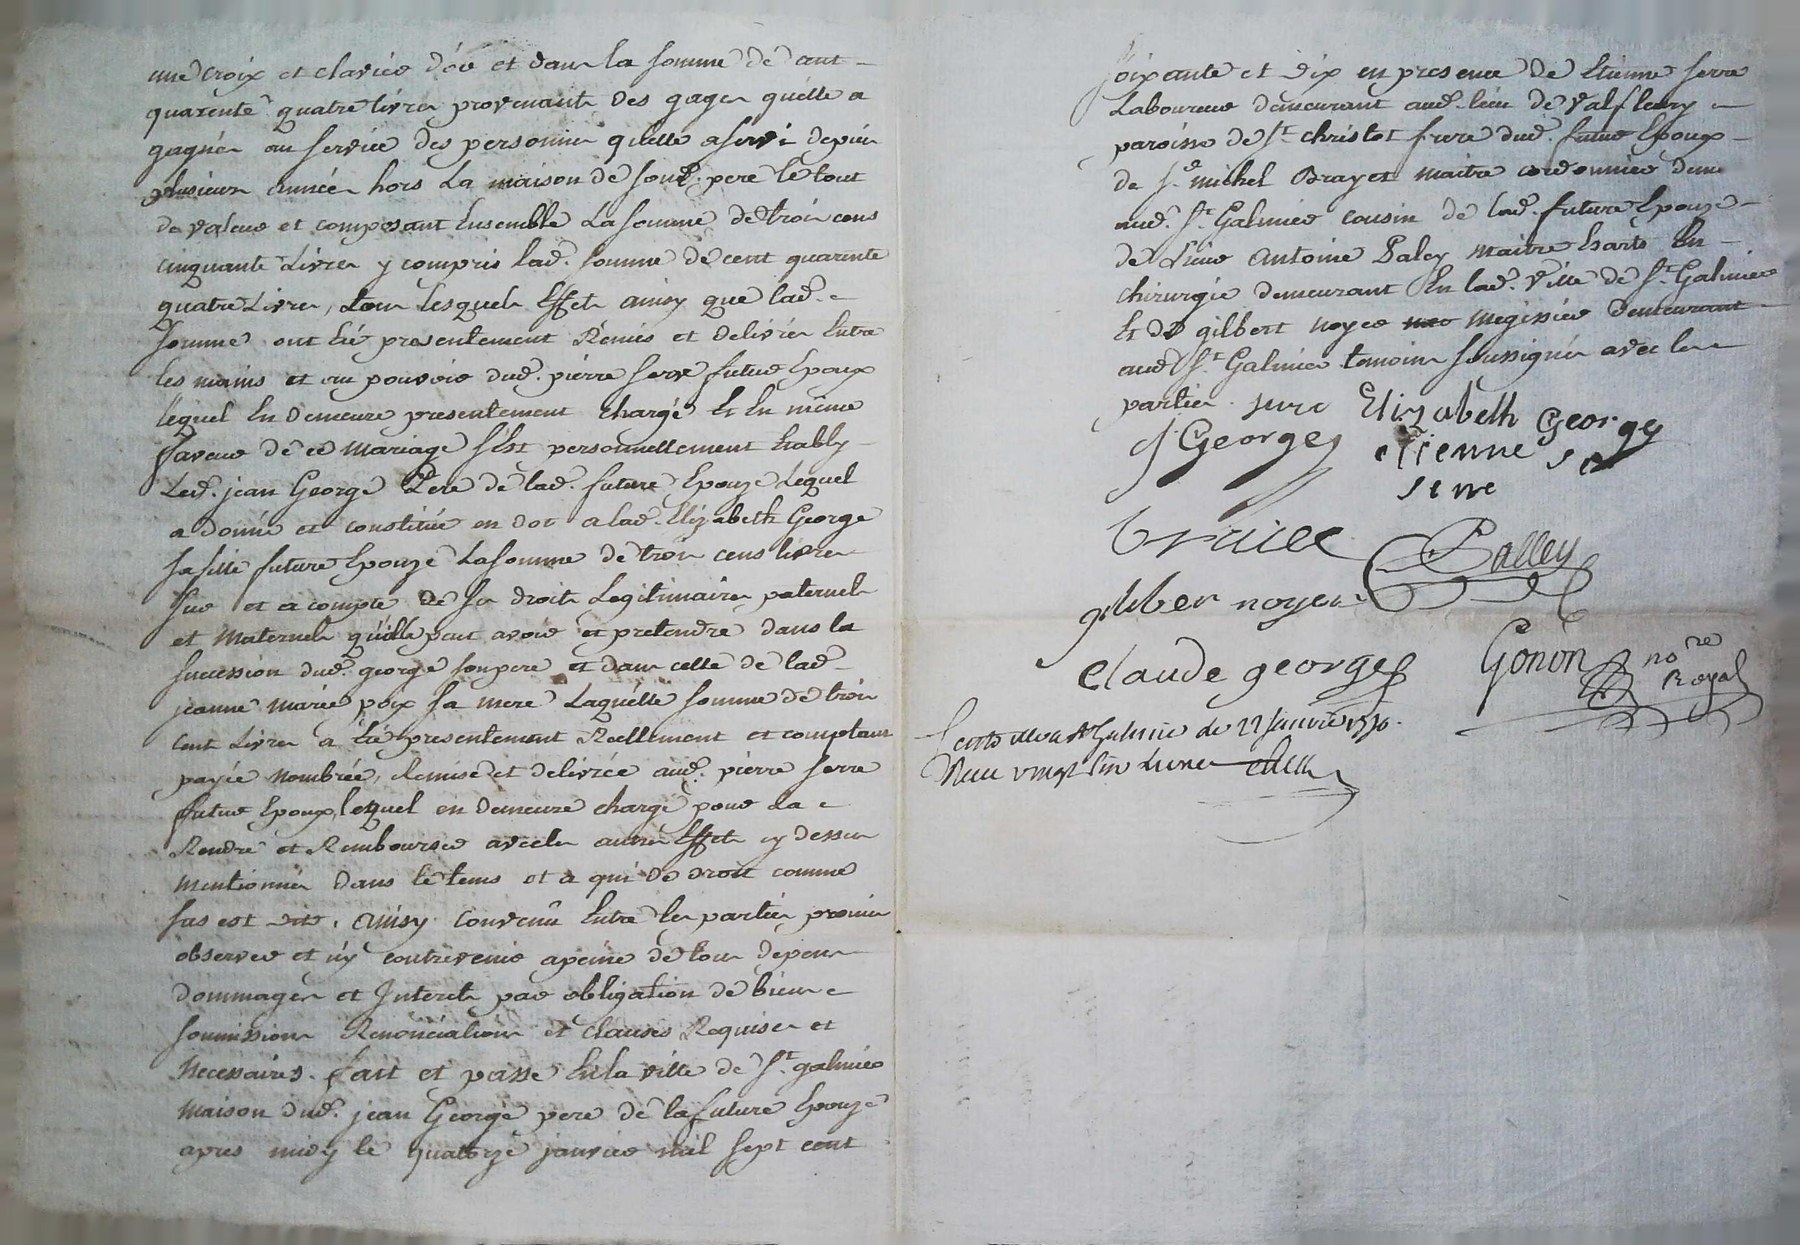 une croix et clavier d'or et dans la somme de cent
quarente quatre livres provenants des gages quelle a
gagnés au service des personnes qelle a servi depuis
plusieurs années hors la maison de sond. pere le tout
de valeur et composant Ensemble La somme de trois cens
cinquante Livres y compris lad. somme de cent quarente
quatre Livres, tous lesquels Effets ainsy que lad.
somme ont été presentement Remis et delivrés Entre
les mains et au pouvoir dud. pierre serre futur Epoux
lequel En demeure presentement chargé Et En même
faveur de ce mariage s'est personnellement Etably
Led. jean George Pere de lad. future Epouze Lequel
a donné et constitué en dot a lad. Elizabeth George
sa fille future Epouze La somme de trois cens livres
sur et a compte de ses droits Legitimaires paternels
et maternels qu'elle peut avoir et pretendre dans la
succession dud. george son pere et dans celle de lad.
jeanne marie poix sa mere Laquelle somme de trois
cent Livres a été presentement Réellement et comptant
payée nombrée, Remise et delivrée aud. pierre serre
futur Epoux, lequel en demeure chargé pour La
Rendre et Rembourser avec les autres Effets cy dessus
mentionnés dans le tems et a qui de droit comme
sus est dit. ainsy convenû Entre les parties promis
observer et n'y contrevenir a peine de tous depens
dommages et Interets par obligation de biens
soumissions Renonciations et clauses Requises et
Necessaires. fait et passé En la ville de St. galmier
maison dud. jean George pere de la future Epouze
apres midy le quatorze janvier mil sept cent
soixante et dix en presence de Etienne serre
Laboureur demeurant aud. lieu de valfleury
paroisse de St. christot frere dud. futur Epoux
de Sr. michel Brayet maitre cordonnier demt
aud. St. Galmier cousin de lad. future Epouze
de sieur Antoine Paley maitre Es arts En
chirurgie demeurant En lad. ville de St. Galmier
Et de gilbert noyer megissier demeurant
aud. St. Galmier temoins soussignés avec les
parties. serre Elizabeth George
J George etienne
serre
Palley
gilber noyer
Claude george Gonon nore
Royal
St Galmier le 22 Janvier 1770.
Recu vingt six livres